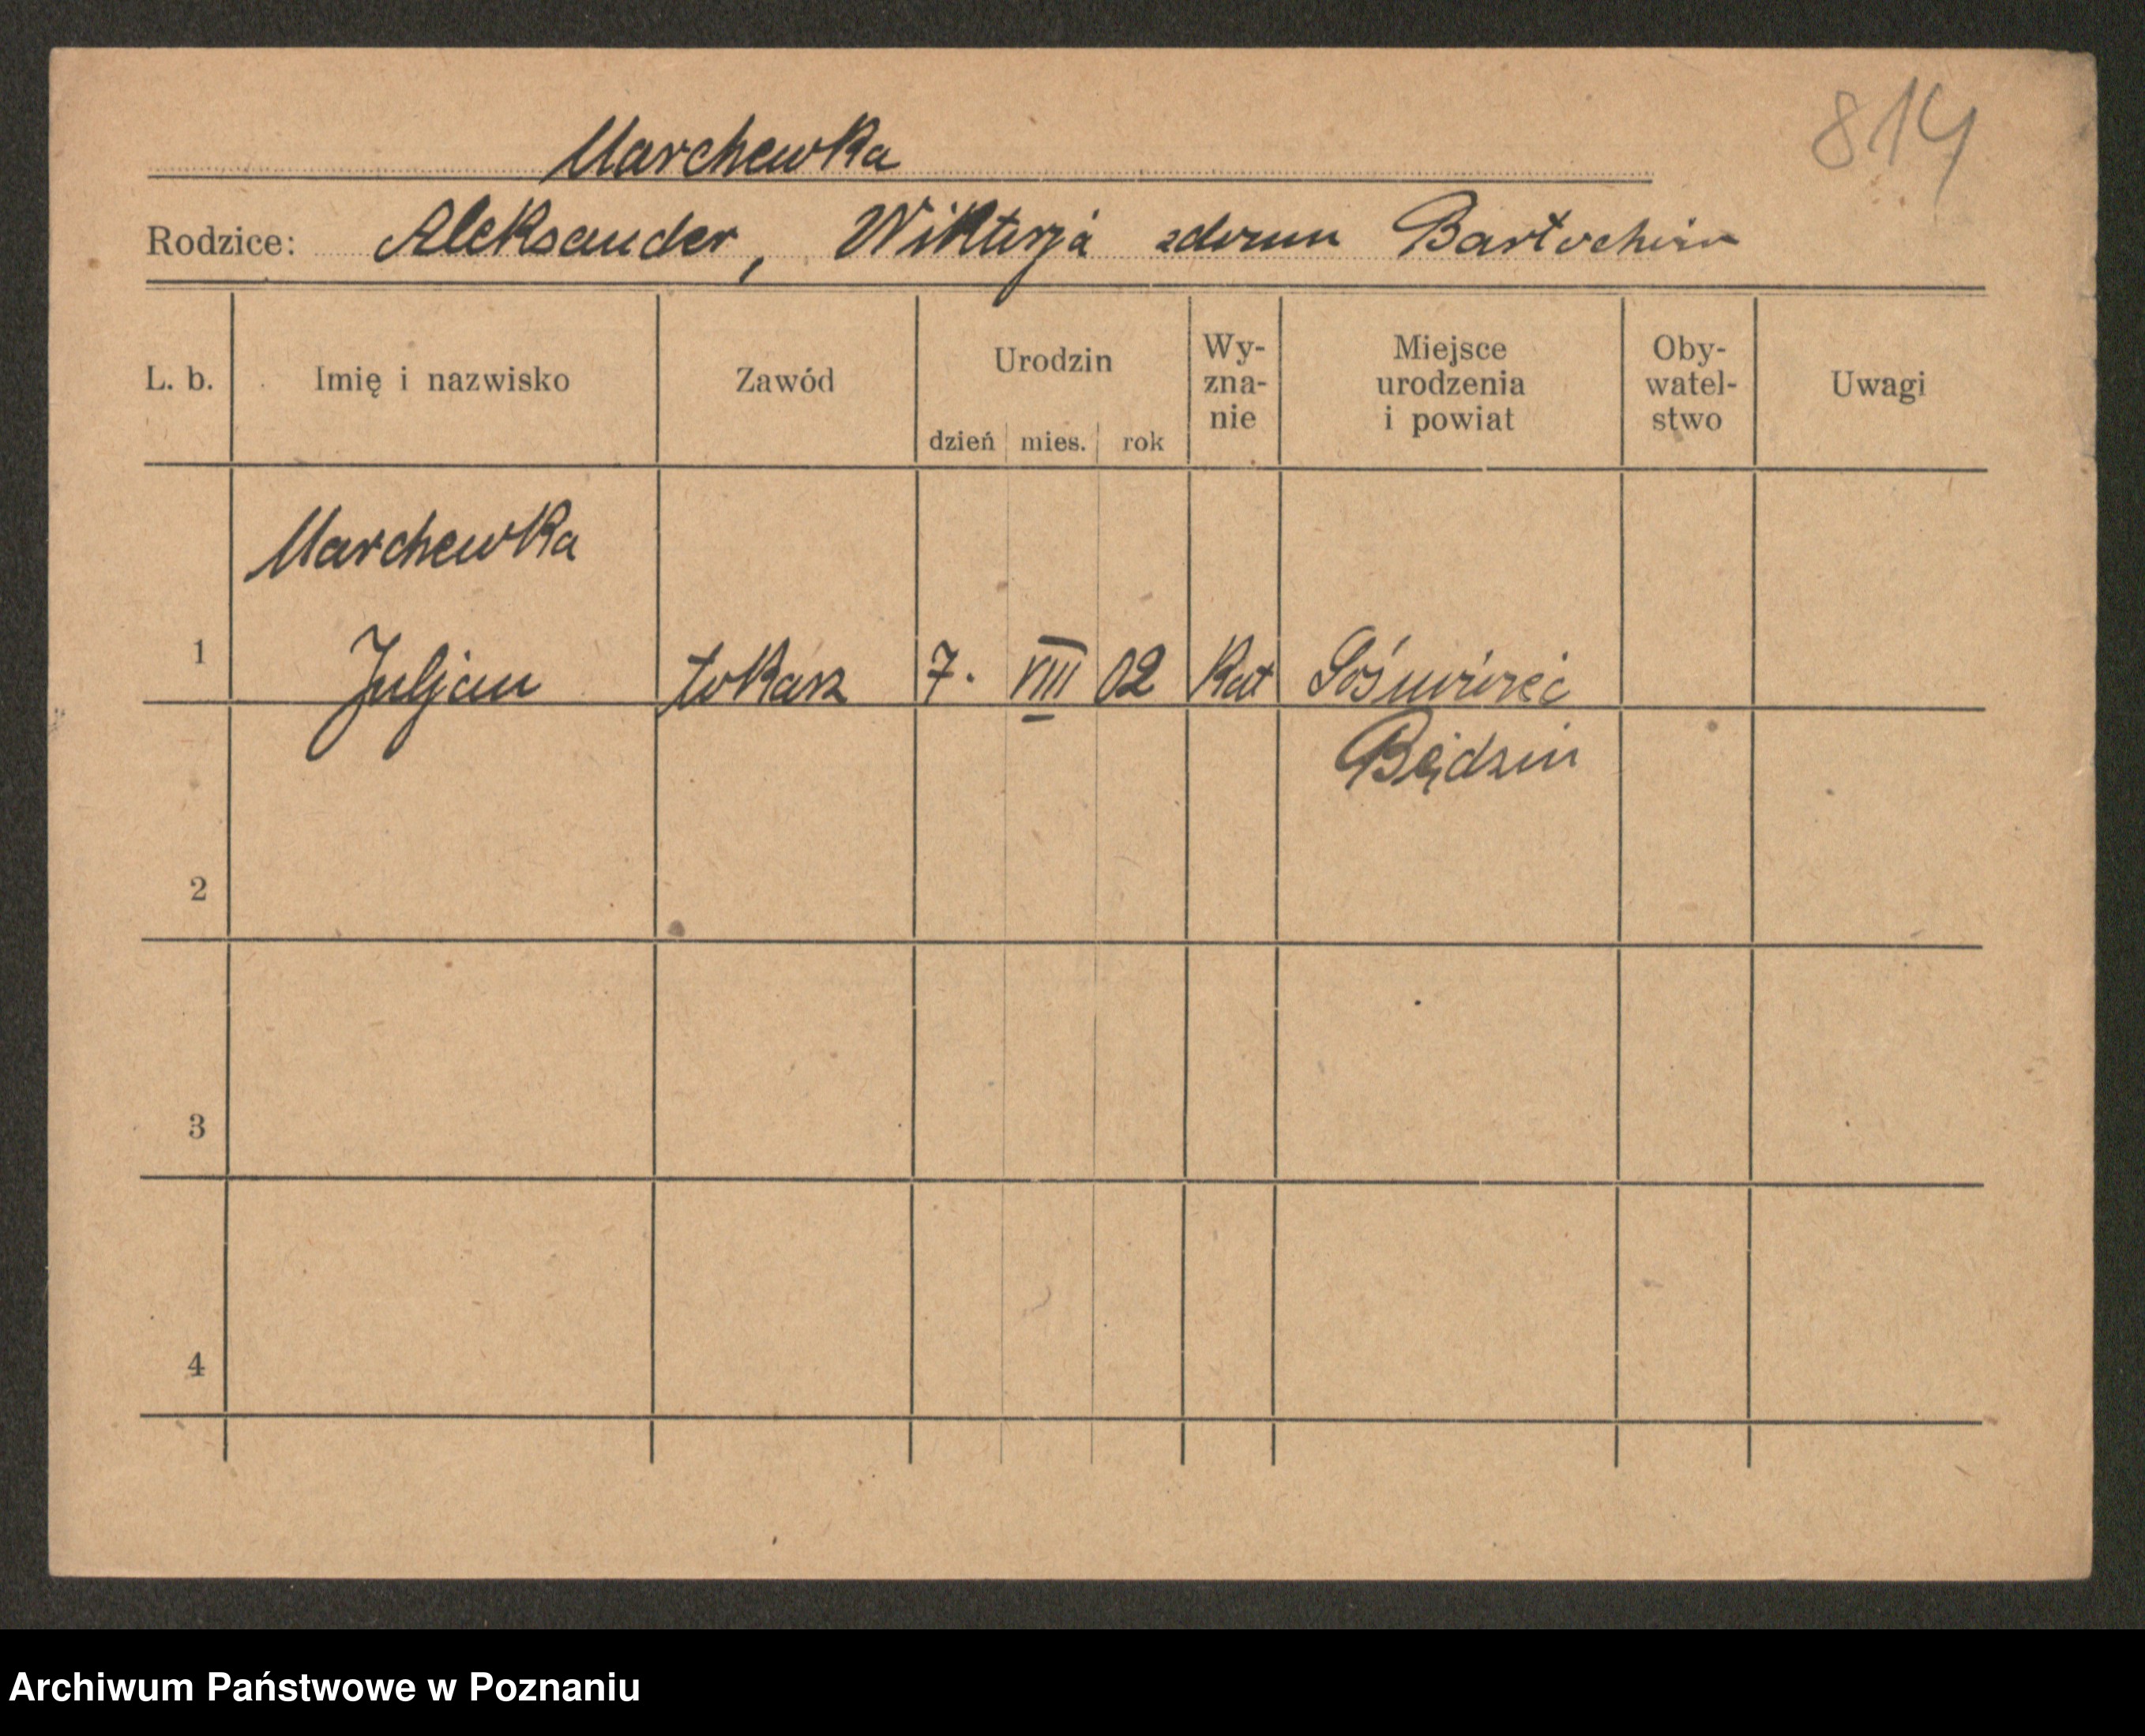 814
Marchewka
Rodzice: Aleksander, Wiktorja zdomu
L. b. Imię i nazwisko Zawód Urodzin dzień mies. rok Wy-zna-nie Miejsce urodzenia i powiat Oby-watel-stwo Uwagi
Marchewka
1 Juljan tokarz 7. VIII 02 Kat
Będzin
2
3
4
Archiwum Państwowe w Poznaniu